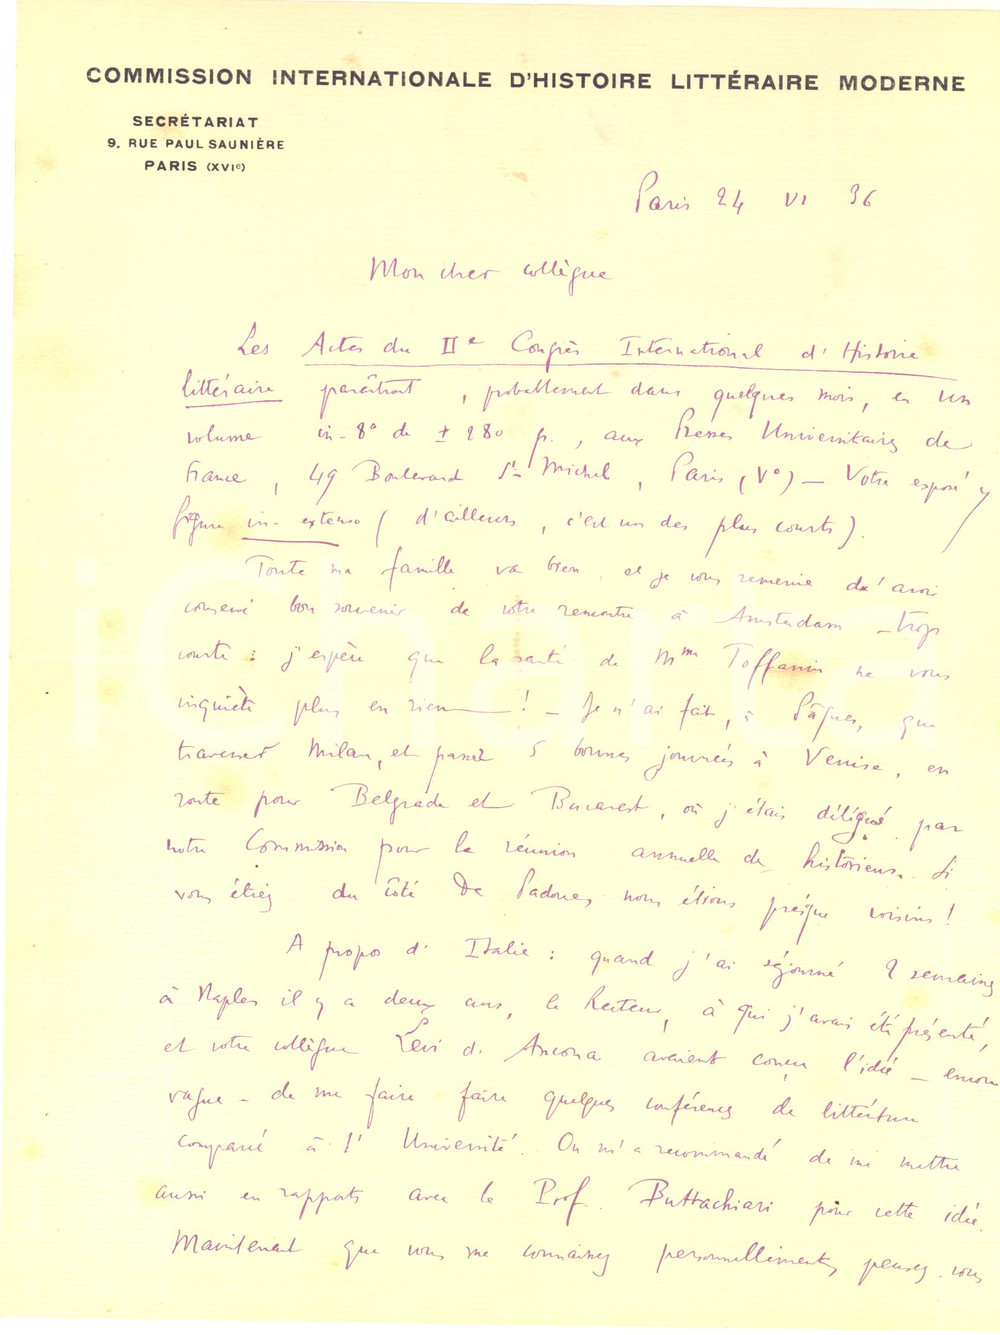 COMMISSION INTERNATIONALE D'HISTOIRE LITTÉRAIRE MODERNE
SECRÉTARIAT
9, RUE PAUL SAUNIÈRE
PARIS (XVIe)
Paris 24 VI 36
Mon cher collègue
Les Actes du IIe Congrès International d'Histoire
littéraire paraîtront, probablement dans quelques mois, en un
volume in-8° de ± 280 p., aux Presses Universitaires de
France, 49 Boulevard St Michel, Paris (Ve) — Votre exposé y
figure in-extenso (d'ailleurs, c'est un des plus courts).
Toute ma famille va bien, et je vous remercie d'avoir
conservé bon souvenir de votre rencontre à Amsterdam — trop
courte : j'espère que la santé de Mme Toffanin ne vous
inquiète plus en rien ! — Je n'ai fait, à Pâques, que
traverser Milan, et passé 5 bonnes journées à Venise, en
route pour Belgrade et Bucarest, où j'étais délégué par
notre Commission pour la réunion annuelle des historiens. Si
vous étiez du côté de Padoue, nous étions presque voisins !
A propos d'Italie : quand j'ai séjourné 2 semaines
à Naples il y a deux ans, le Recteur, à qui j'avais été présenté,
et votre collègue Levi d'Ancona avaient conçu l'idée — encore
vague — de me faire faire quelques conférences de littérature
comparée à l'Université. On m'a recommandé de me mettre
aussi en rapports avec le Prof. Buttachiari pour cette idée.
Maintenant que vous me connaissez personnellement, pensez-vous
iCharta